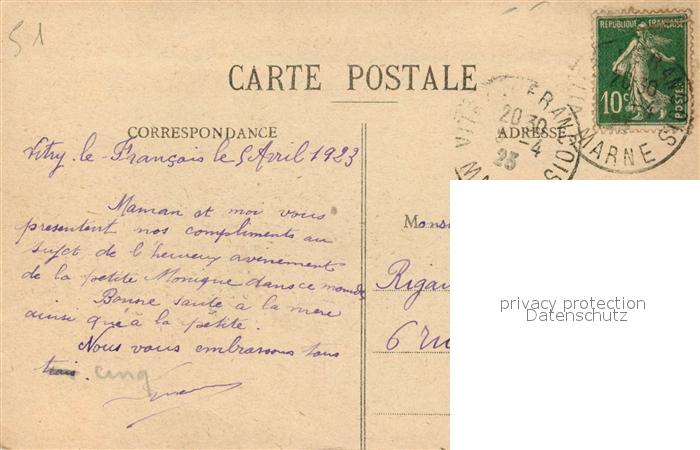 51
CARTE POSTALE
RÉPUBLIQUE FRANÇAISE
10c
POSTES
CORRESPONDANCE
ADRESSE
20 30
-4
23
MARNE
Vitry-le-François le 5 Avril 1923
Maman et moi vous
présentent nos compliments au
sujet de l'heureux avenement
de la petite Monique dans ce monde
Bonne santé à la mère
ainsi qu'à la petite.
Nous vous embrassons tous
trois. cinq
Mons
Rigau
6 ru
privacy protection
Datenschutz